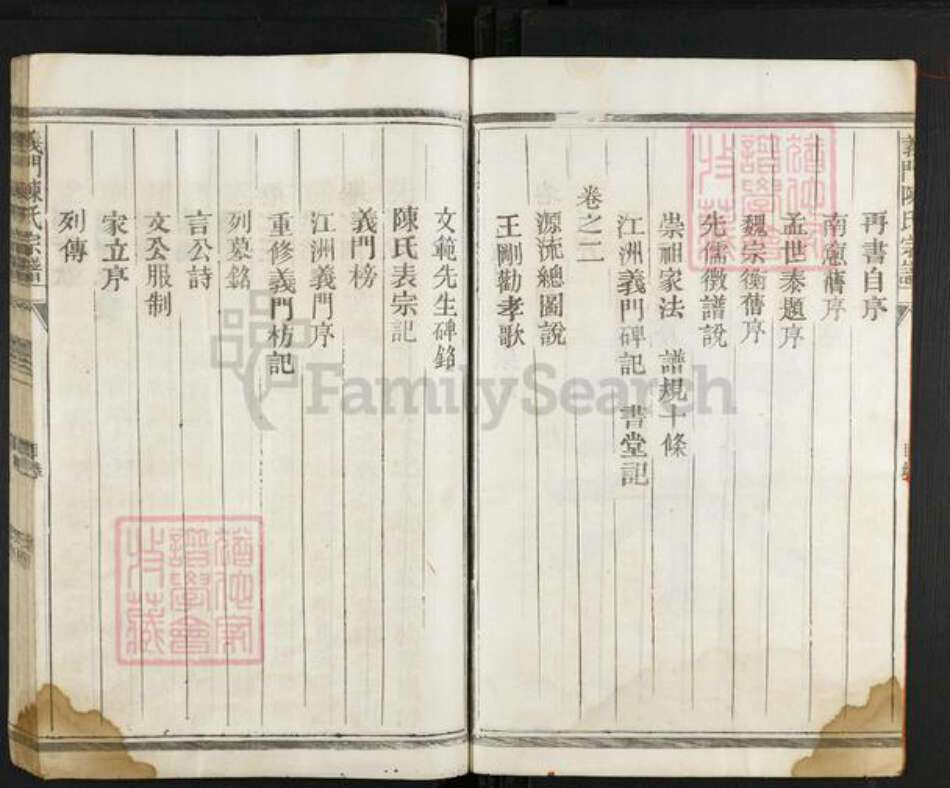 義門陳氏宗譜
再書自序
南窻舊序
孟世泰題序
魏宗衡舊序
先儒徵譜說
崇祖家法 譜規十條
江洲義門碑記 書堂記
卷之二
源流總圖說
王剛勸孝歌
文範先生碑銘
陳氏表宗記
義門榜
江洲義門序
重修義門枋記
列墓銘
言公詩
文公服制
家立序
列傳
義門陳氏宗譜
FamilySearch